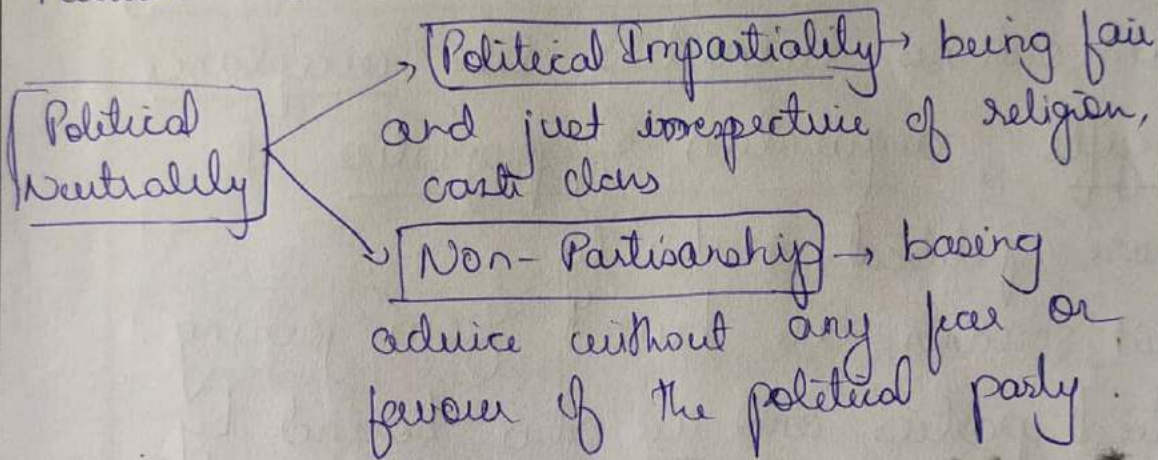 Political Impartiality → being fair
Political
Neutrality
and just irrespective of religion,
caste class
Non-Partisanship → basing
advice without any fear or
favour of the political party.